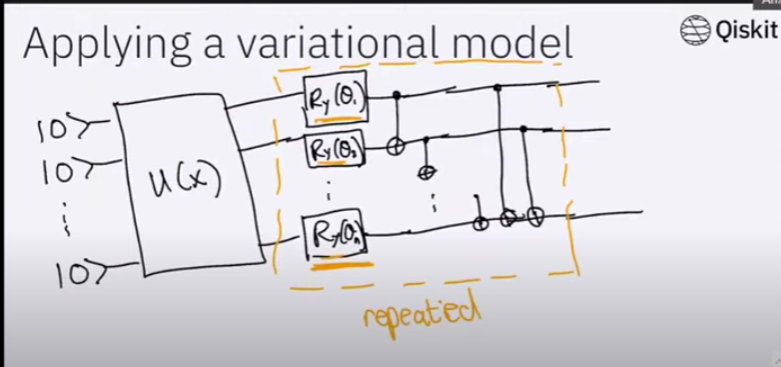 Applying a variational model
Qiskit
|0>
|0>
|0>
U(x)
Ry(θ₁)
Ry(θ₂)
Ry(θₙ)
repeated